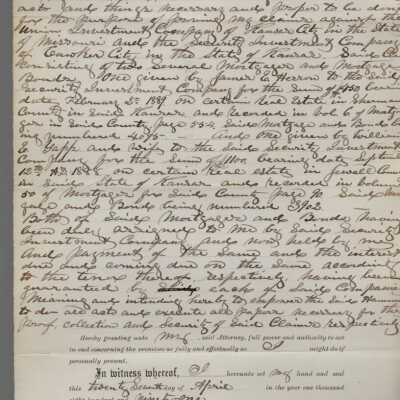 acts and things necessary and proper to be done
for the purpose of proving my claims against the
Union Investment Company of Kansas City in the State
of Missouri and the Security Investment Company
of Cawker City in the State of Kansas. Said Claims
Consisting of two several Mortgages and Mortgage
Bonds. One given by James W Herron to the Said
Security Investment Company for the Sum of $ bearing
date February 2nd 1889 on certain Real Estate in
County in Said Kansas and recorded in Vol 6 of Mort
gages in Said County page 554. Said Mortgage and Bonds be
ing numbered 4095 And one given by William
E Yapp and wife to the Said Security Investment
Company for the Sum of $1100 bearing date Septem
12th AD 1888 on certain real estate in Jewell County
in Said State of Kansas and recorded in Volume
50 of Mortgages for Said County page 70 Said Mort
gage and Bond being numbered 3902
Both of Said Mortgages and Bonds having
been duly assigned to me by Said Security
Investment Company and now held by me
And payment of the Same and the interest
due and coming due on the Same according
to the tenor thereof respectively having been
guaranteed by each of Said Companies
Meaning and intending hereby to empower the Said
to do all acts and execute all papers necessary for the
proof, collection and Security of Said Claims respectively
Hereby granting unto My said Attorney, full power and authority to act
in and concerning the premises as fully and effectually as I might do if
personally present.
In witness whereof, I hereunto set my hand and seal
this twenty Second day of April in the year one thousand
eight hundred and Ninety One